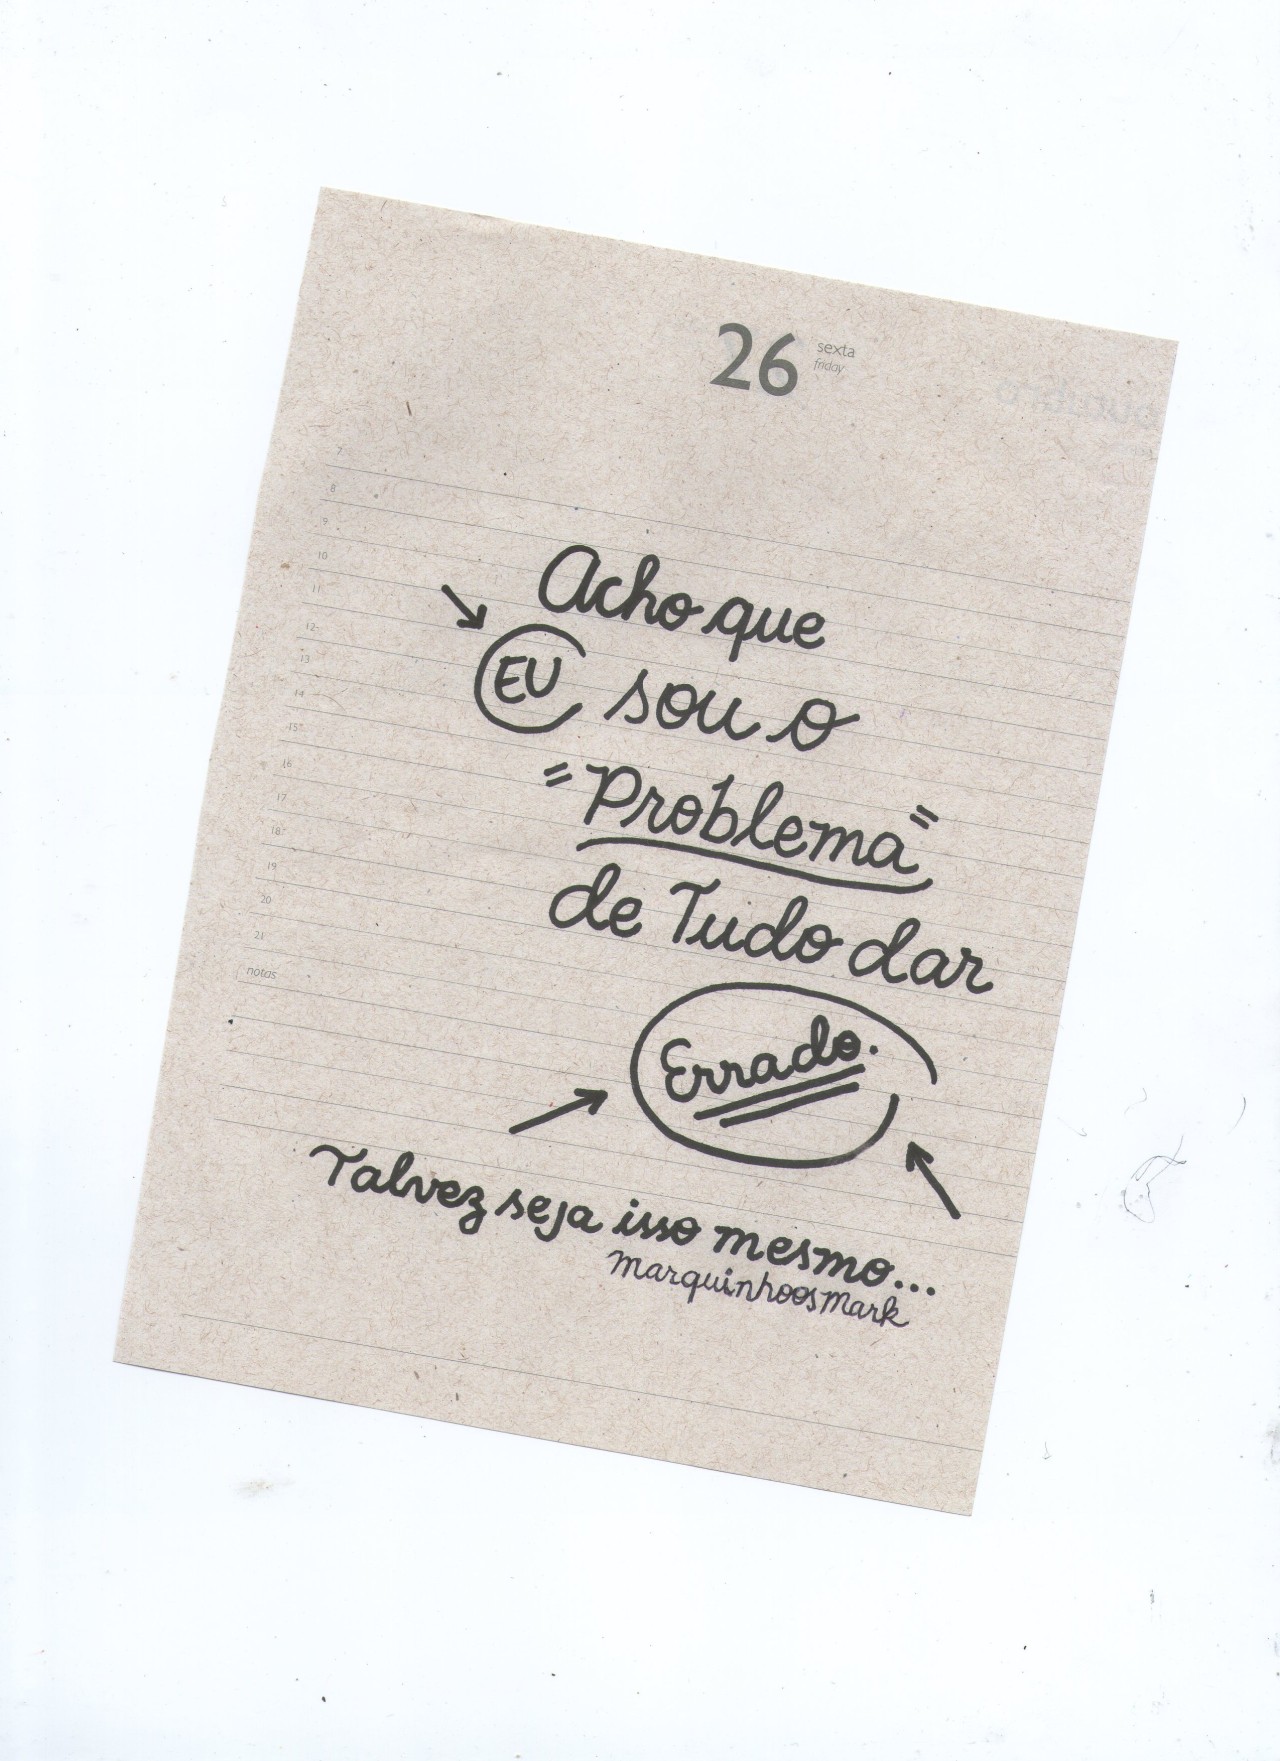 26 sexta
friday
7
8
9
10
11
12
13
14
15
16
17
18
19
20
21
notas
Acho que
EU sou o
"Problema"
de Tudo dar
Errado.
Talvez seja isso mesmo...
marquinhoosmark